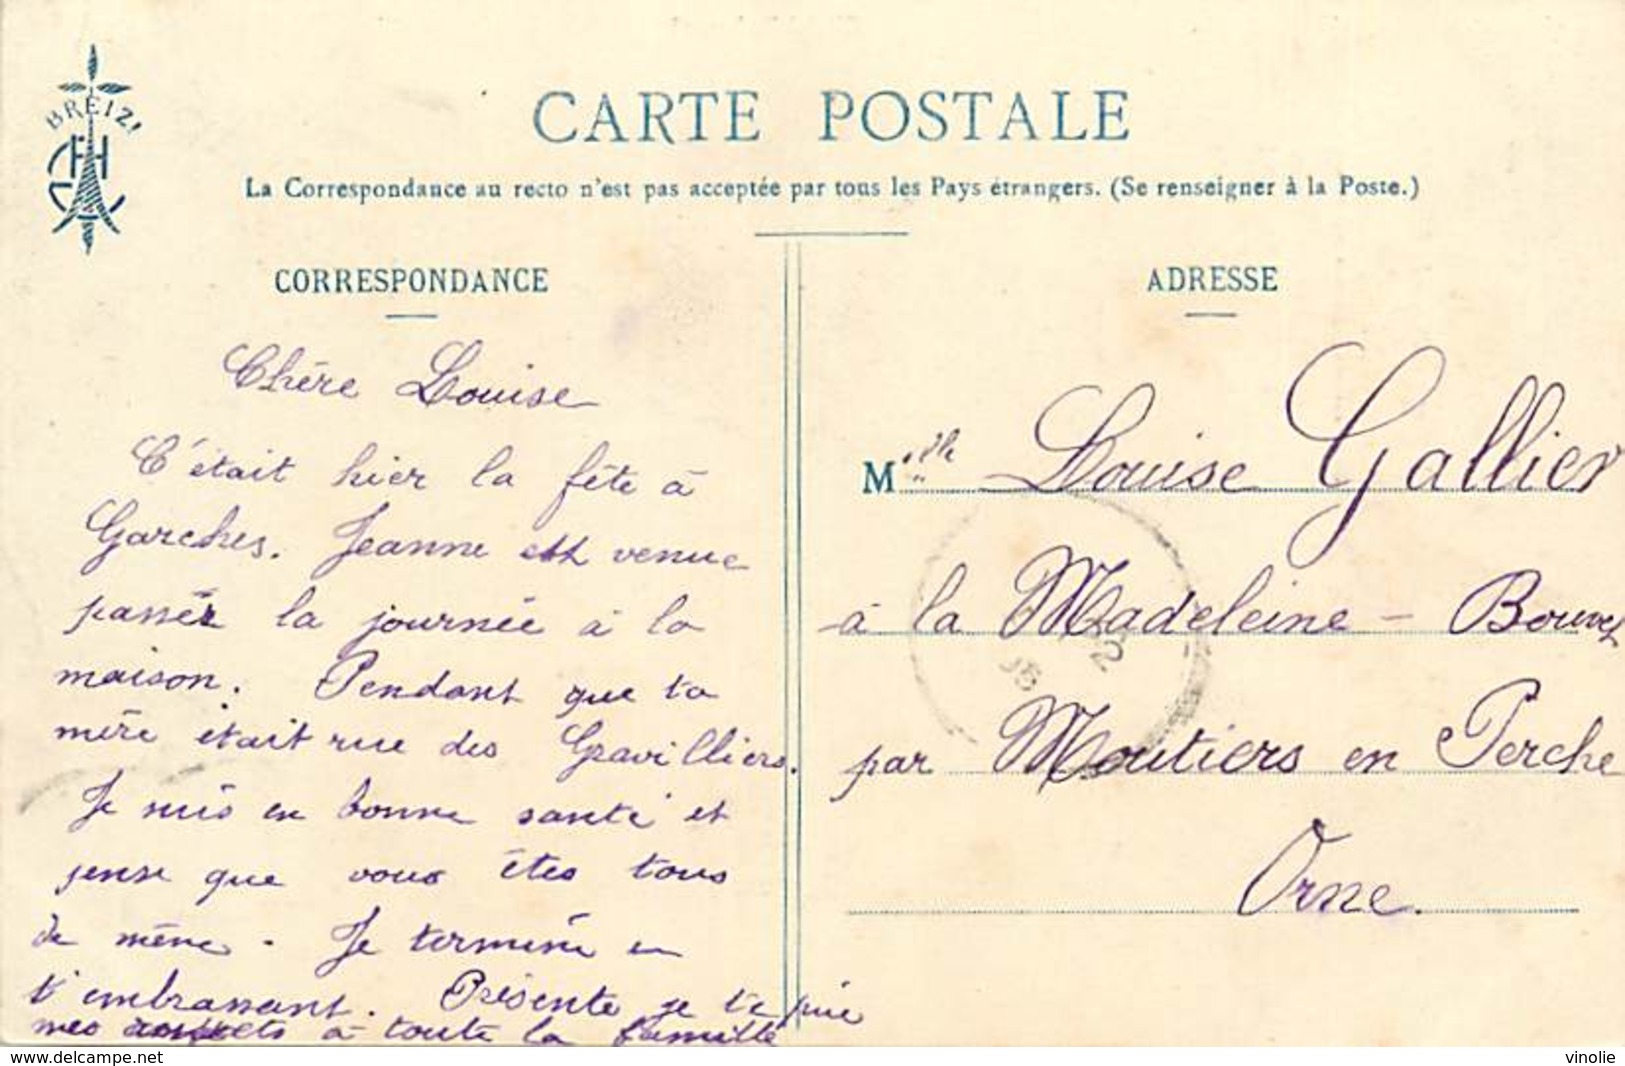 BREIZ!
CARTE POSTALE
La Correspondance au recto n'est pas acceptée par tous les Pays étrangers. (Se renseigner à la Poste.)
CORRESPONDANCE
Chére Louise
C'était hier la fête à
Garches. Jeanne est venue
passér la journée à la
maison. Pendant que ta
mère était rue des Gravilliers.
Je suis en bonne santé et
pense que vous êtes tous
de même. Je termine en
t'embrassant. Présente je te prie
mes à toute la famille
ADRESSE
Mlle Louise Gallier
à la Madeleine - Bouvet
par Moutiers en Perche
Orne.
vinolie
www.delcampe.net